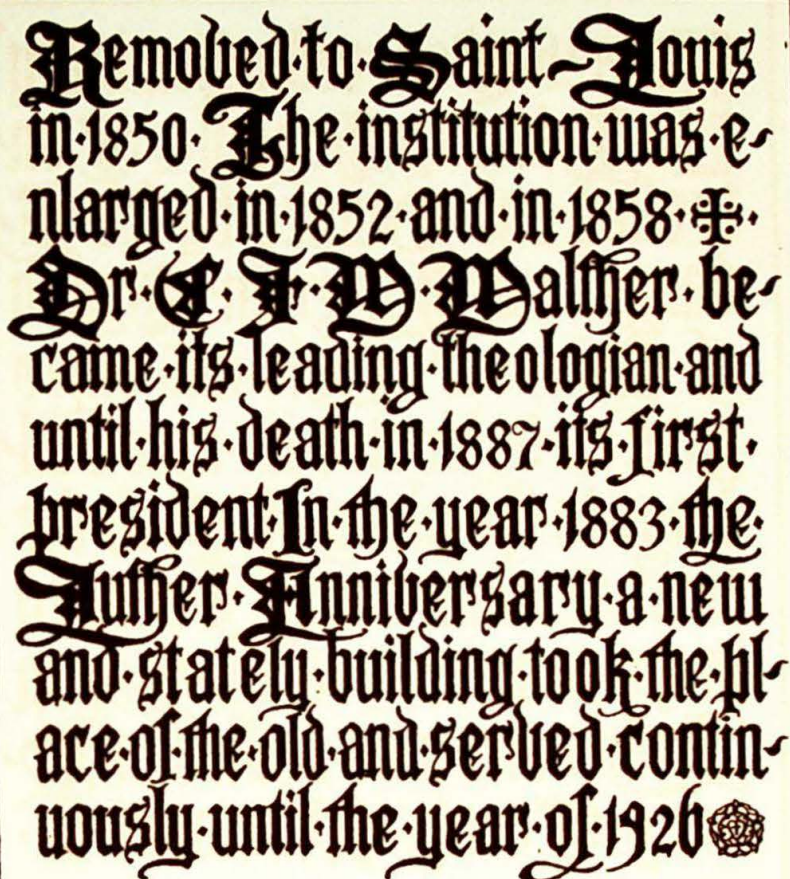 Removed·to·Saint~Louis
in·1850·The·institution·was·e-
nlarged·in·1852·and·in·1858·✠·
Dr·C·F·W·Walther·be-
came·its·leading·theologian·and
until·his·death·in·1887·its·first·
president·In·the·year·1883·the·
Luther·Anniversary·a·new
and·stately·building·took·the·pl-
ace·of·the·old·and·served·contin-
uously·until·the·year·of·1926